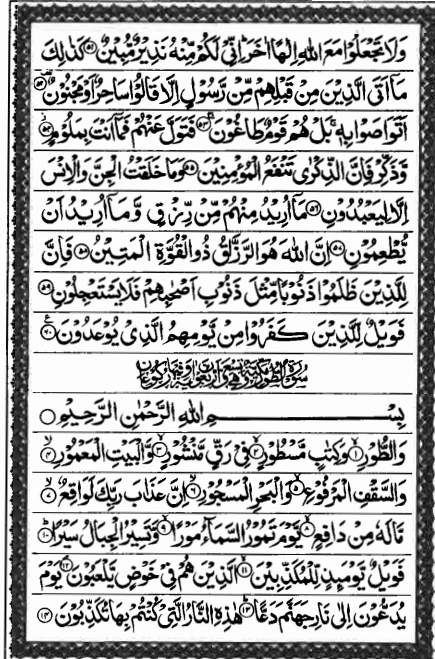 وَلَا تَجْعَلُوْا مَعَ اللّٰهِ اِلٰهًا اٰخَرَ ؕ اِنِّیْ لَكُمْ مِّنْهُ نَذِیْرٌ مُّبِیْنٌ ۝۵۱ كَذٰلِكَ
مَاۤ اَتَی الَّذِیْنَ مِنْ قَبْلِهِمْ مِّنْ رَّسُوْلٍ اِلَّا قَالُوْا سَاحِرٌ اَوْ مَجْنُوْنٌ ۝۵۲
اَتَوَاصَوْا بِهٖ ۚ بَلْ هُمْ قَوْمٌ طَاغُوْنَ ۝۵۳ فَتَوَلَّ عَنْهُمْ فَمَاۤ اَنْتَ بِمَلُوْمٍ ۝۵۴
وَّذَكِّرْ فَاِنَّ الذِّكْرٰی تَنْفَعُ الْمُؤْمِنِیْنَ ۝۵۵ وَمَا خَلَقْتُ الْجِنَّ وَالْاِنْسَ
اِلَّا لِیَعْبُدُوْنِ ۝۵۶ مَاۤ اُرِیْدُ مِنْهُمْ مِّنْ رِّزْقٍ وَّمَاۤ اُرِیْدُ اَنْ
یُّطْعِمُوْنِ ۝۵۷ اِنَّ اللّٰهَ هُوَ الرَّزَّاقُ ذُو الْقُوَّةِ الْمَتِیْنُ ۝۵۸ فَاِنَّ
لِلَّذِیْنَ ظَلَمُوْا ذَنُوْبًا مِّثْلَ ذَنُوْبِ اَصْحٰبِهِمْ فَلَا یَسْتَعْجِلُوْنِ ۝۵۹
فَوَیْلٌ لِّلَّذِیْنَ كَفَرُوْا مِنْ یَّوْمِهِمُ الَّذِیْ یُوْعَدُوْنَ ۝۶۰
سُوْرَةُ الطُّوْرِ مَكِّیَّةٌ وَّهِیَ تِسْعٌ وَّاَرْبَعُوْنَ اٰیَةً وَّفِیْهَا رُكُوْعَانِ
بِسْمِ اللّٰهِ الرَّحْمٰنِ الرَّحِیْمِ ۝
وَالطُّوْرِ ۝۱ وَكِتٰبٍ مَّسْطُوْرٍ ۝۲ فِیْ رَقٍّ مَّنْشُوْرٍ ۝۳ وَّالْبَیْتِ الْمَعْمُوْرِ ۝۴
وَالسَّقْفِ الْمَرْفُوْعِ ۝۵ وَالْبَحْرِ الْمَسْجُوْرِ ۝۶ اِنَّ عَذَابَ رَبِّكَ لَوَاقِعٌ ۝۷
مَّا لَهٗ مِنْ دَافِعٍ ۝۸ یَّوْمَ تَمُوْرُ السَّمَآءُ مَوْرًا ۝۹ وَّتَسِیْرُ الْجِبَالُ سَیْرًا ۝۱۰
فَوَیْلٌ یَّوْمَىِٕذٍ لِّلْمُكَذِّبِیْنَ ۝۱۱ الَّذِیْنَ هُمْ فِیْ خَوْضٍ یَّلْعَبُوْنَ ۝۱۲ یَوْمَ
یُدَعُّوْنَ اِلٰی نَارِ جَهَنَّمَ دَعًّا ۝۱۳ هٰذِهِ النَّارُ الَّتِیْ كُنْتُمْ بِهَا تُكَذِّبُوْنَ ۝۱۴